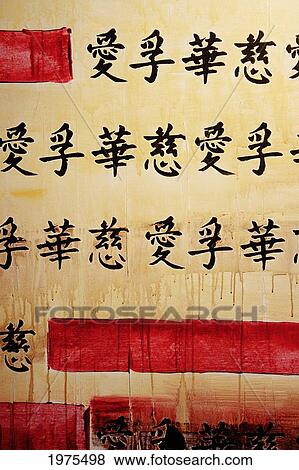 愛孚華慈
愛孚華慈愛孚
孚華慈愛孚華慈
慈
愛孚華慈
FOTOSEARCH
1975498 www.fotosearch.com